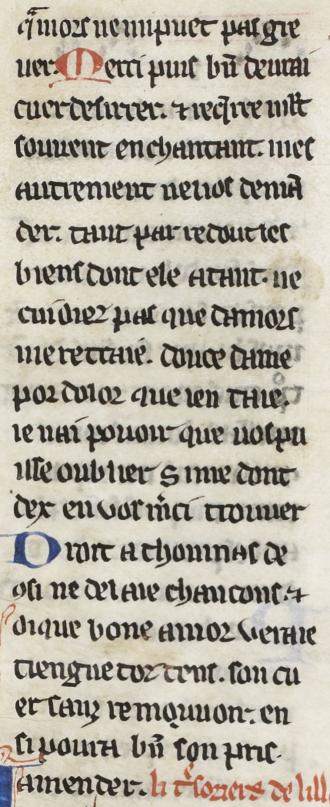 q̃mors ne mi puet pas gre
uer. Merci puis bñ de urai
cuer desirrer. ⁊ req̃rre mlt̃
souuent en chantant. mes
autrement ne los demã
der. tant par redout les
biens dont ele a tant. ne
cuidiez pas que damors
me retraie. douce dame
por dolor que ien traie.
ie nai pouoir que uos pu
isse oublier Si me dont
dex en vos m̃ci trouuer
Droit a thoumas de
ꝯsi ne delaie chancons. ⁊
di que bone amor veraie
tiengne toz tens. son cu
er sanz remouuoir. en
si pourra bñ son pris
amender. li t̃soriers de lill